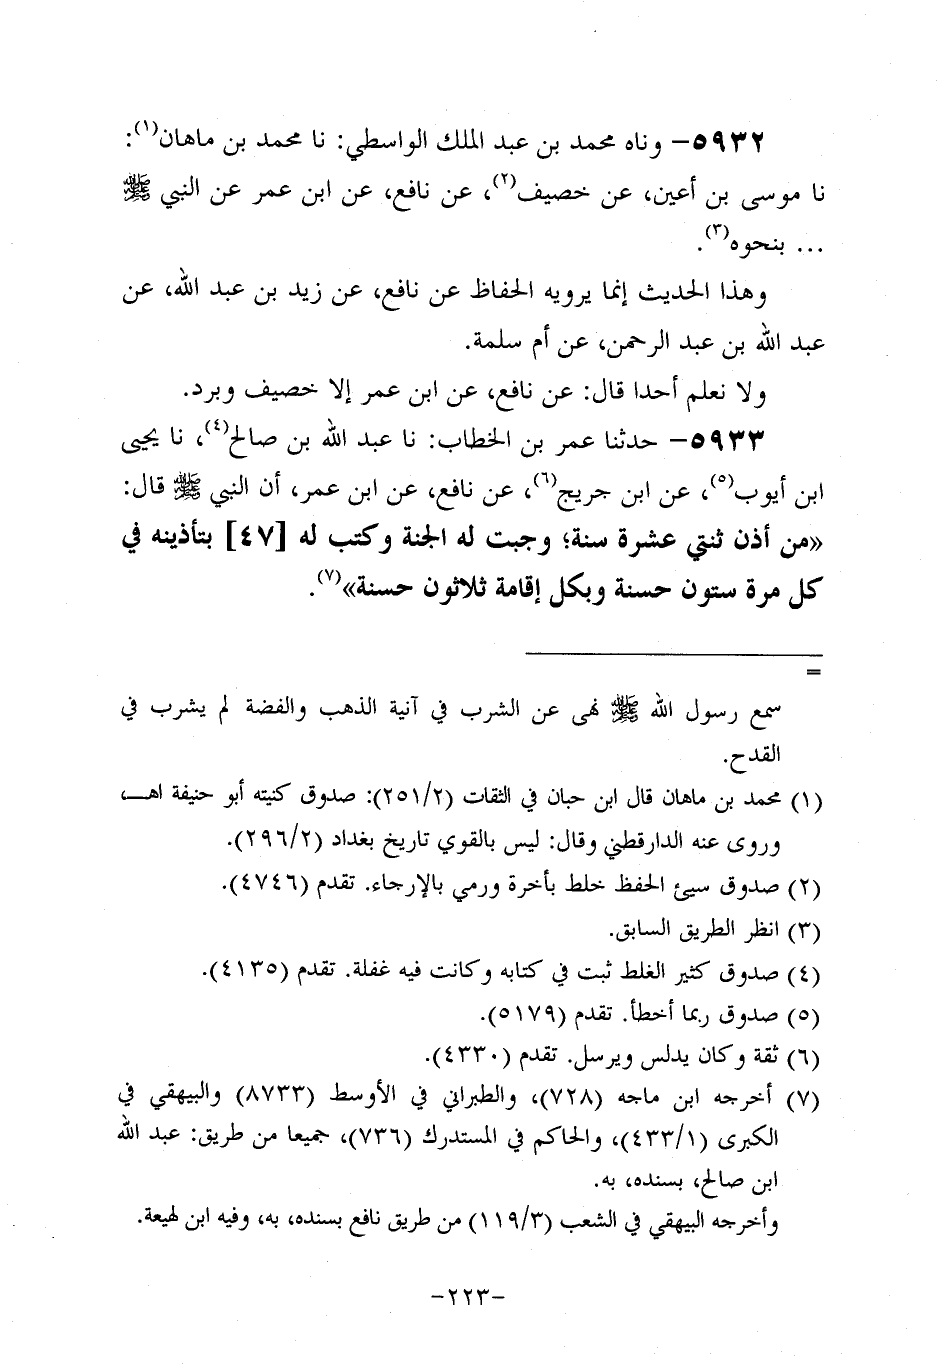 ٥٩٣٢- وناه محمد بن عبد الملك الواسطي: نا محمد بن ماهان(١):
نا موسى بن أعين، عن خصيف(٢)، عن نافع، عن ابن عمر عن النبي ﷺ
... بنحوه(٣).
وهذا الحديث إنما يرويه الحفاظ عن نافع، عن زيد بن عبد الله، عن
عبد الله بن عبد الرحمن، عن أم سلمة.
ولا نعلم أحدا قال: عن نافع، عن ابن عمر إلا خصيف وبرد.
٥٩٣٣- حدثنا عمر بن الخطاب: نا عبد الله بن صالح(٤)، نا يحيى
ابن أيوب(٥)، عن ابن جريج(٦)، عن نافع، عن ابن عمر، أن النبي ﷺ قال:
«من أذن ثنتي عشرة سنة؛ وجبت له الجنة وكتب له [٤٧] بتأذينه في
كل مرة ستون حسنة وبكل إقامة ثلاثون حسنة»(٧).
=
سمع رسول الله ﷺ نهى عن الشرب في آنية الذهب والفضة لم يشرب في
القدح.
(١) محمد بن ماهان قال ابن حبان في الثقات (٢٥١/٢): صدوق كنيته أبو حنيفة اهـ،
وروى عنه الدارقطني وقال: ليس بالقوي تاريخ بغداد (٢٩٦/٢).
(٢) صدوق سيئ الحفظ خلط بأخرة ورمي بالإرجاء. تقدم (٤٧٤٦).
(٣) انظر الطريق السابق.
(٤) صدوق كثير الغلط ثبت في كتابه وكانت فيه غفلة. تقدم (٤١٣٥).
(٥) صدوق ربما أخطأ. تقدم (٥١٧٩).
(٦) ثقة وكان يدلس ويرسل. تقدم (٤٣٣٠).
(٧) أخرجه ابن ماجه (٧٢٨)، والطبراني في الأوسط (٨٧٣٣) والبيهقي في
الكبرى (٤٣٣/١)، والحاكم في المستدرك (٧٣٦)، جميعا من طريق: عبد الله
ابن صالح، بسنده، به.
وأخرجه البيهقي في الشعب (١١٩/٣) من طريق نافع بسنده، به، وفيه ابن لهيعة.
-٢٢٣-